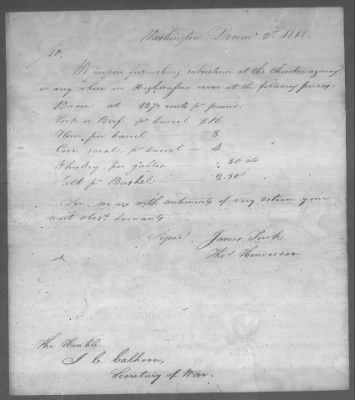 Washington Decemr 2d 1818.
Sir,
We propose furnishing subsistence at the Cherokee agency
or any where on Highwassee river at the following prices.
Bacon at 12½ cents pr pound.
Pork or Beef, pr barrel $16.
Flour, per barrel 8
Corn meal, pr barrel — 4
Whiskey, per gallon .50 cts
Salt pr Bushel 2.50
Sir, we are with sentiments of very esteem your
most obedt servants
Signed James
Thos Henderson
The Honble.
J. C. Calhoun,
Secretary of War.